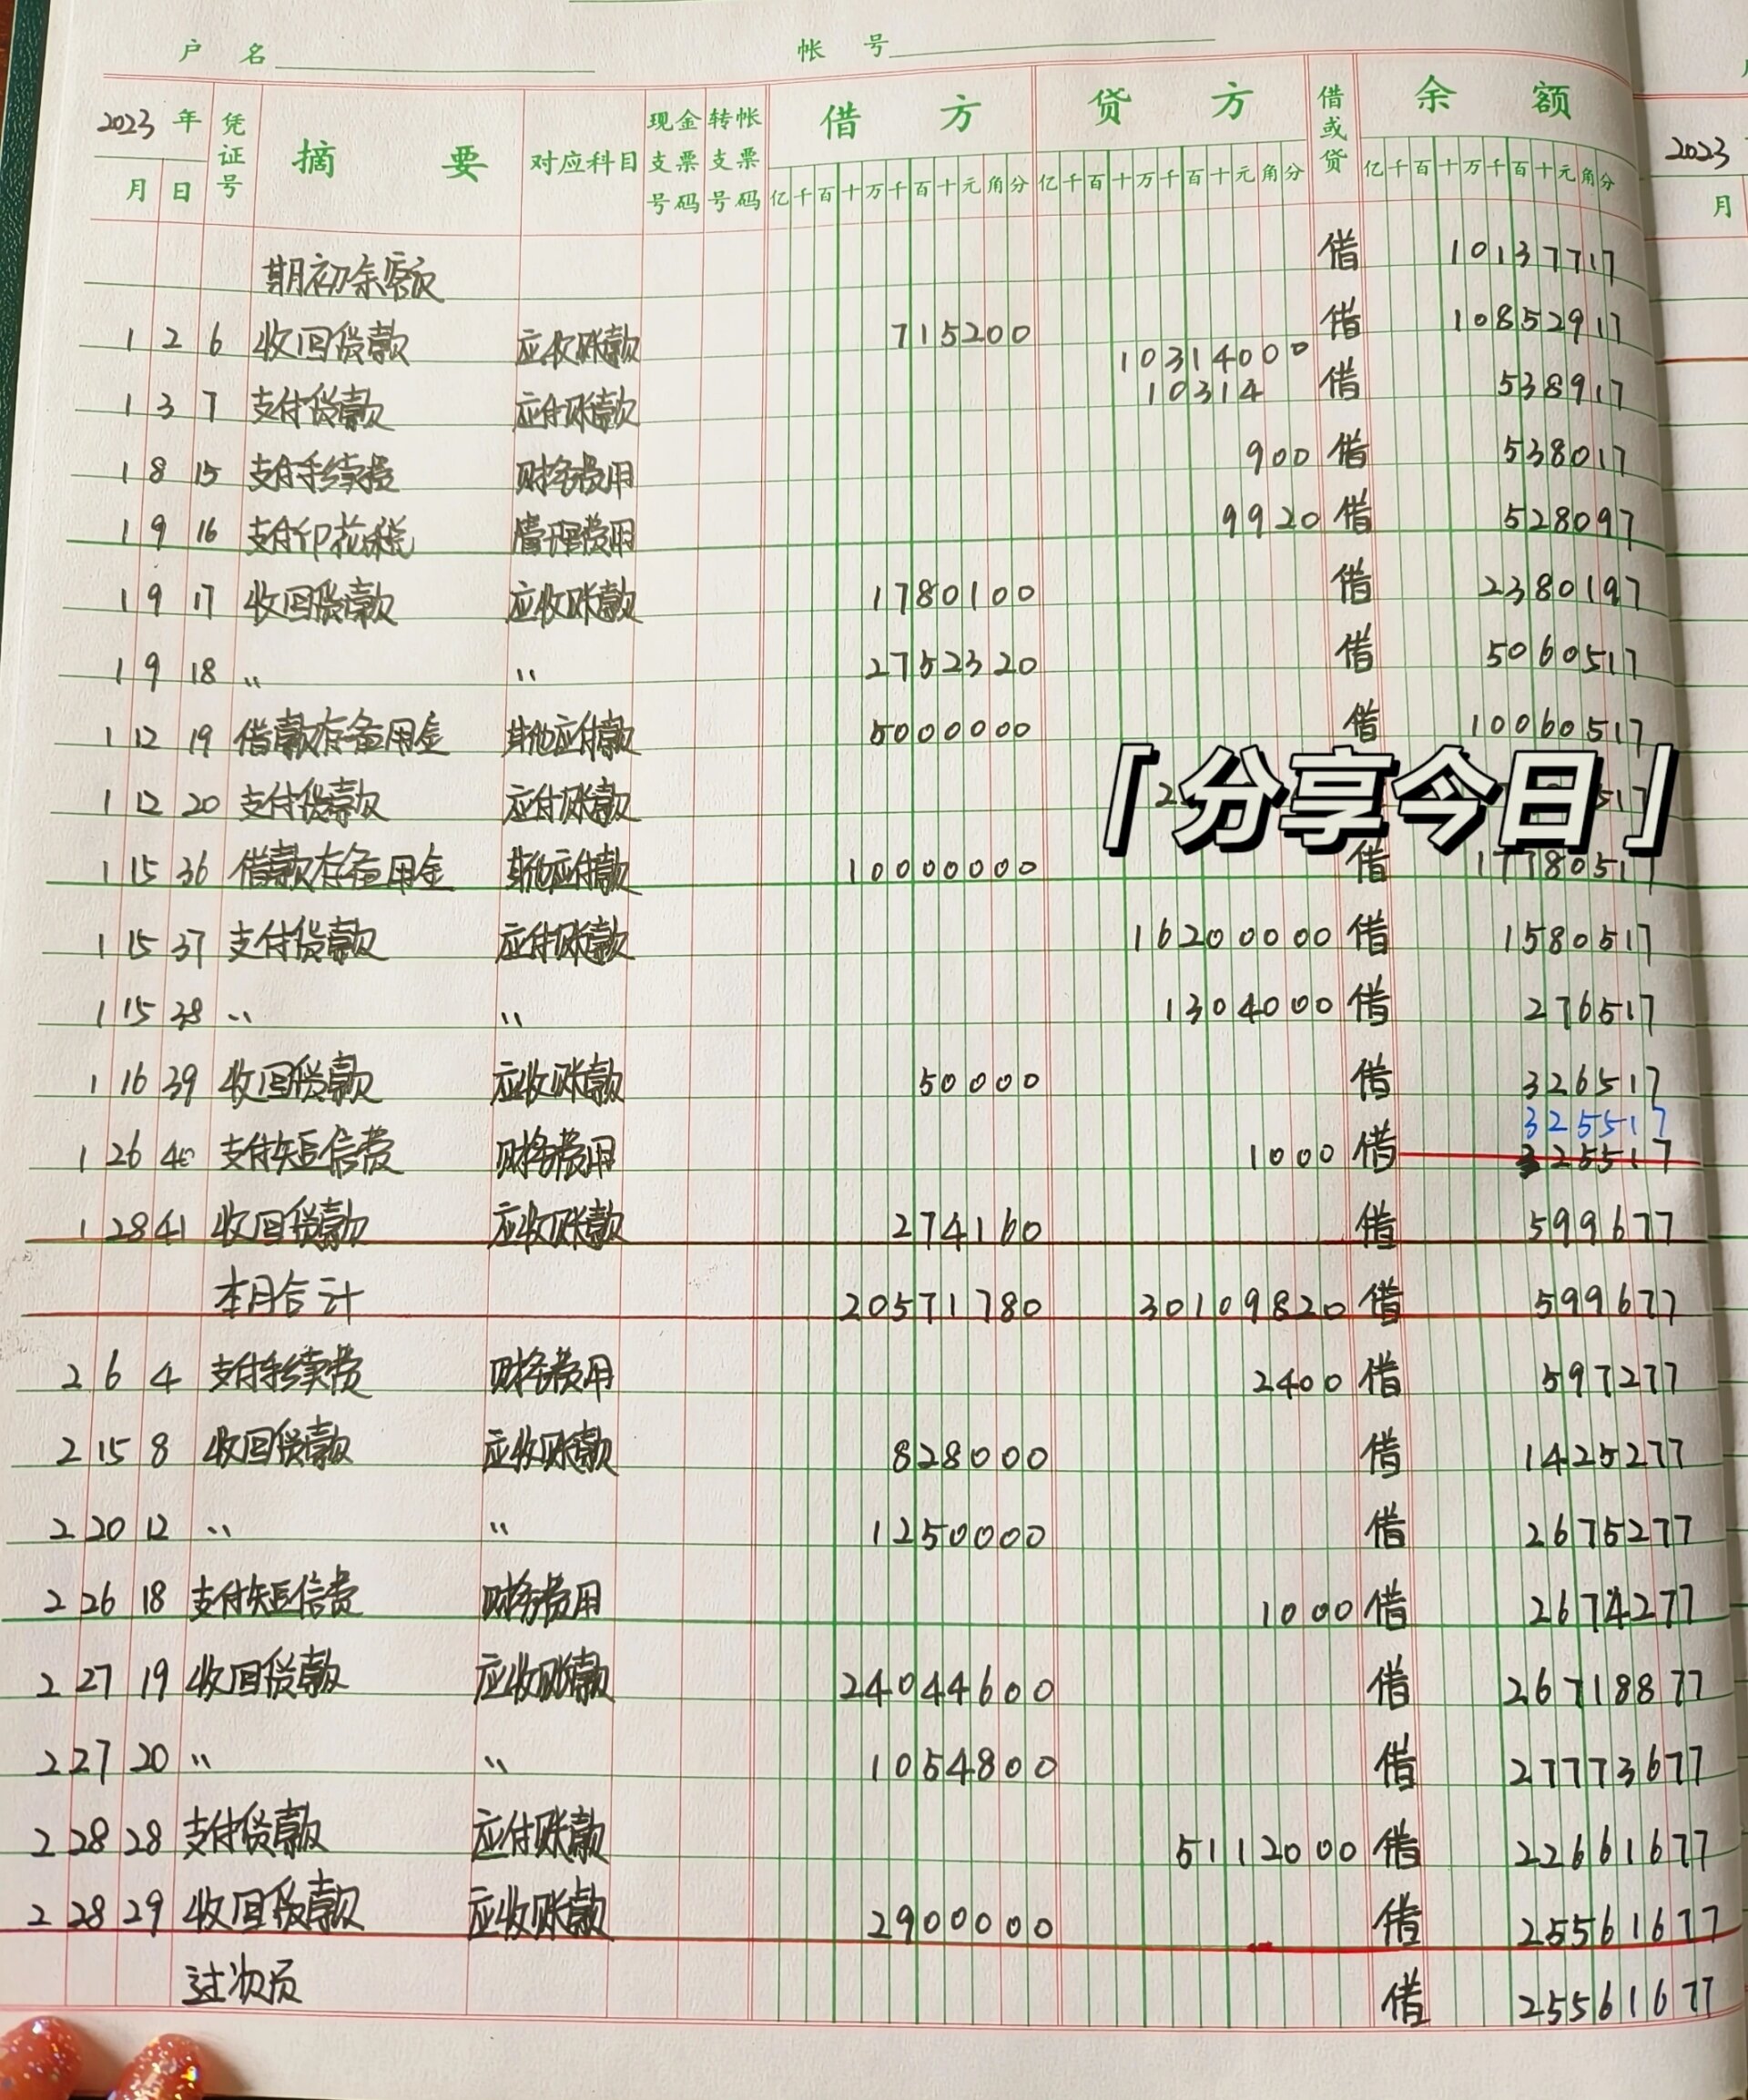 户 名 帐 号
2023 年 凭证号 摘 要 对应科目 现金支票号码 转帐支票号码 借 方 贷 方 借或贷 余 额 2023
月 日 亿千百十万千百十元角分 亿千百十万千百十元角分 亿千百十万千百十元角分 月
期初余额 借 10137717
1 2 6 收回货款 应收账款 715200 借 10852917
10314000
1 3 7 支付货款 应付账款 10314 借 538917
1 8 15 支付手续费 财务费用 900 借 538017
1 9 16 支付印花税 管理费用 9920 借 528097
1 9 17 收回货款 应收账款 1780100 借 2380197
1 9 18 〃 〃 2752320 借 5060517
1 12 19 借款存备用金 其他应付款 5000000 借 10060517
「分享今日」
1 12 20 支付货款 应付账款
1 15 36 借款存备用金 其他应付款 10000000 借 17780517
1 15 37 支付货款 应付账款 16200000 借 1580517
1 15 38 〃 〃 1304000 借 276517
1 16 39 收回货款 应收账款 50000 借 326517
325517
1 26 40 支付短信费 财务费用 1000 借 325517
1 28 41 收回货款 应收账款 274160 借 599677
本月合计 20571780 30109820 借 599677
2 6 4 支付手续费 财务费用 2400 借 597277
2 15 8 收回货款 应收账款 828000 借 1425277
2 20 12 〃 〃 1250000 借 2675277
2 26 18 支付短信费 财务费用 1000 借 2674277
2 27 19 收回货款 应收账款 24044600 借 26718877
2 27 20 〃 〃 1054800 借 27773677
2 28 28 支付货款 应付账款 5112000 借 22661677
2 28 29 收回货款 应收账款 2900000 借 25561677
过次页 借 25561677